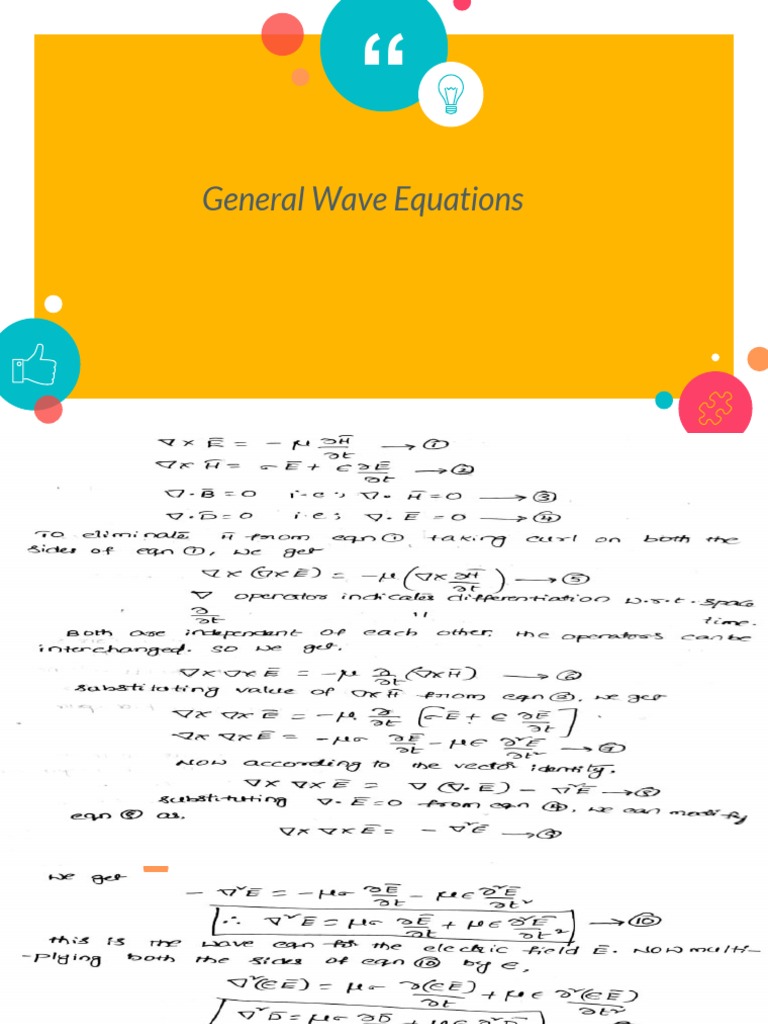 “
General Wave Equations
∇ × Ē = - μ ∂H̄/∂t → ①
∇ × H̄ = σ Ē + ϵ ∂Ē/∂t → ②
∇ . B̄ = 0 i.e ; ∇ . H̄ = 0 → ③
∇ . D̄ = 0 i.e ; ∇ . Ē = 0 → ④
To eliminate H̄ from eqn ① taking curl on both the
sides of eqn ①, we get
∇ × (∇ × Ē) = - μ (∇ × ∂H̄/∂t) → ⑤
∇ operator indicates differentiation w.r.t. space
∂/∂t " time.
Both are independent of each other. the operators can be
interchanged. so we get,
∇ × ∇ × Ē = - μ ∂/∂t (∇ × H̄) → ⑥
substituting value of ∇ × H̄ from eqn ②, we get
∇ × ∇ × Ē = - μ. ∂/∂t [σ Ē + ϵ ∂Ē/∂t]
∇ × ∇ × Ē = - μσ ∂Ē/∂t - μϵ ∂²Ē/∂t² → ⑦
Now according to the vector identity.
∇ × ∇ × Ē = ∇ (∇ . Ē) - ∇²Ē → ⑧
substituting ∇ . Ē = 0 from eqn ④, we can modify
eqn ⑧ as.
∇ × ∇ × Ē = - ∇²Ē → ⑨
we get
- ∇²Ē = - μσ ∂Ē/∂t - μϵ ∂²Ē/∂t²
∴ ∇²Ē = μσ ∂Ē/∂t + μϵ ∂²Ē/∂t² → ⑩
this is the wave eqn for the electric field Ē. Now multi-
-plying both the sides of eqn ⑩ by ϵ,
∇²(ϵĒ) = μσ ∂(ϵĒ)/∂t + μϵ ∂²(ϵĒ)/∂t²
∇²D̄ = μσ ∂D̄ + μϵ ∂²D̄